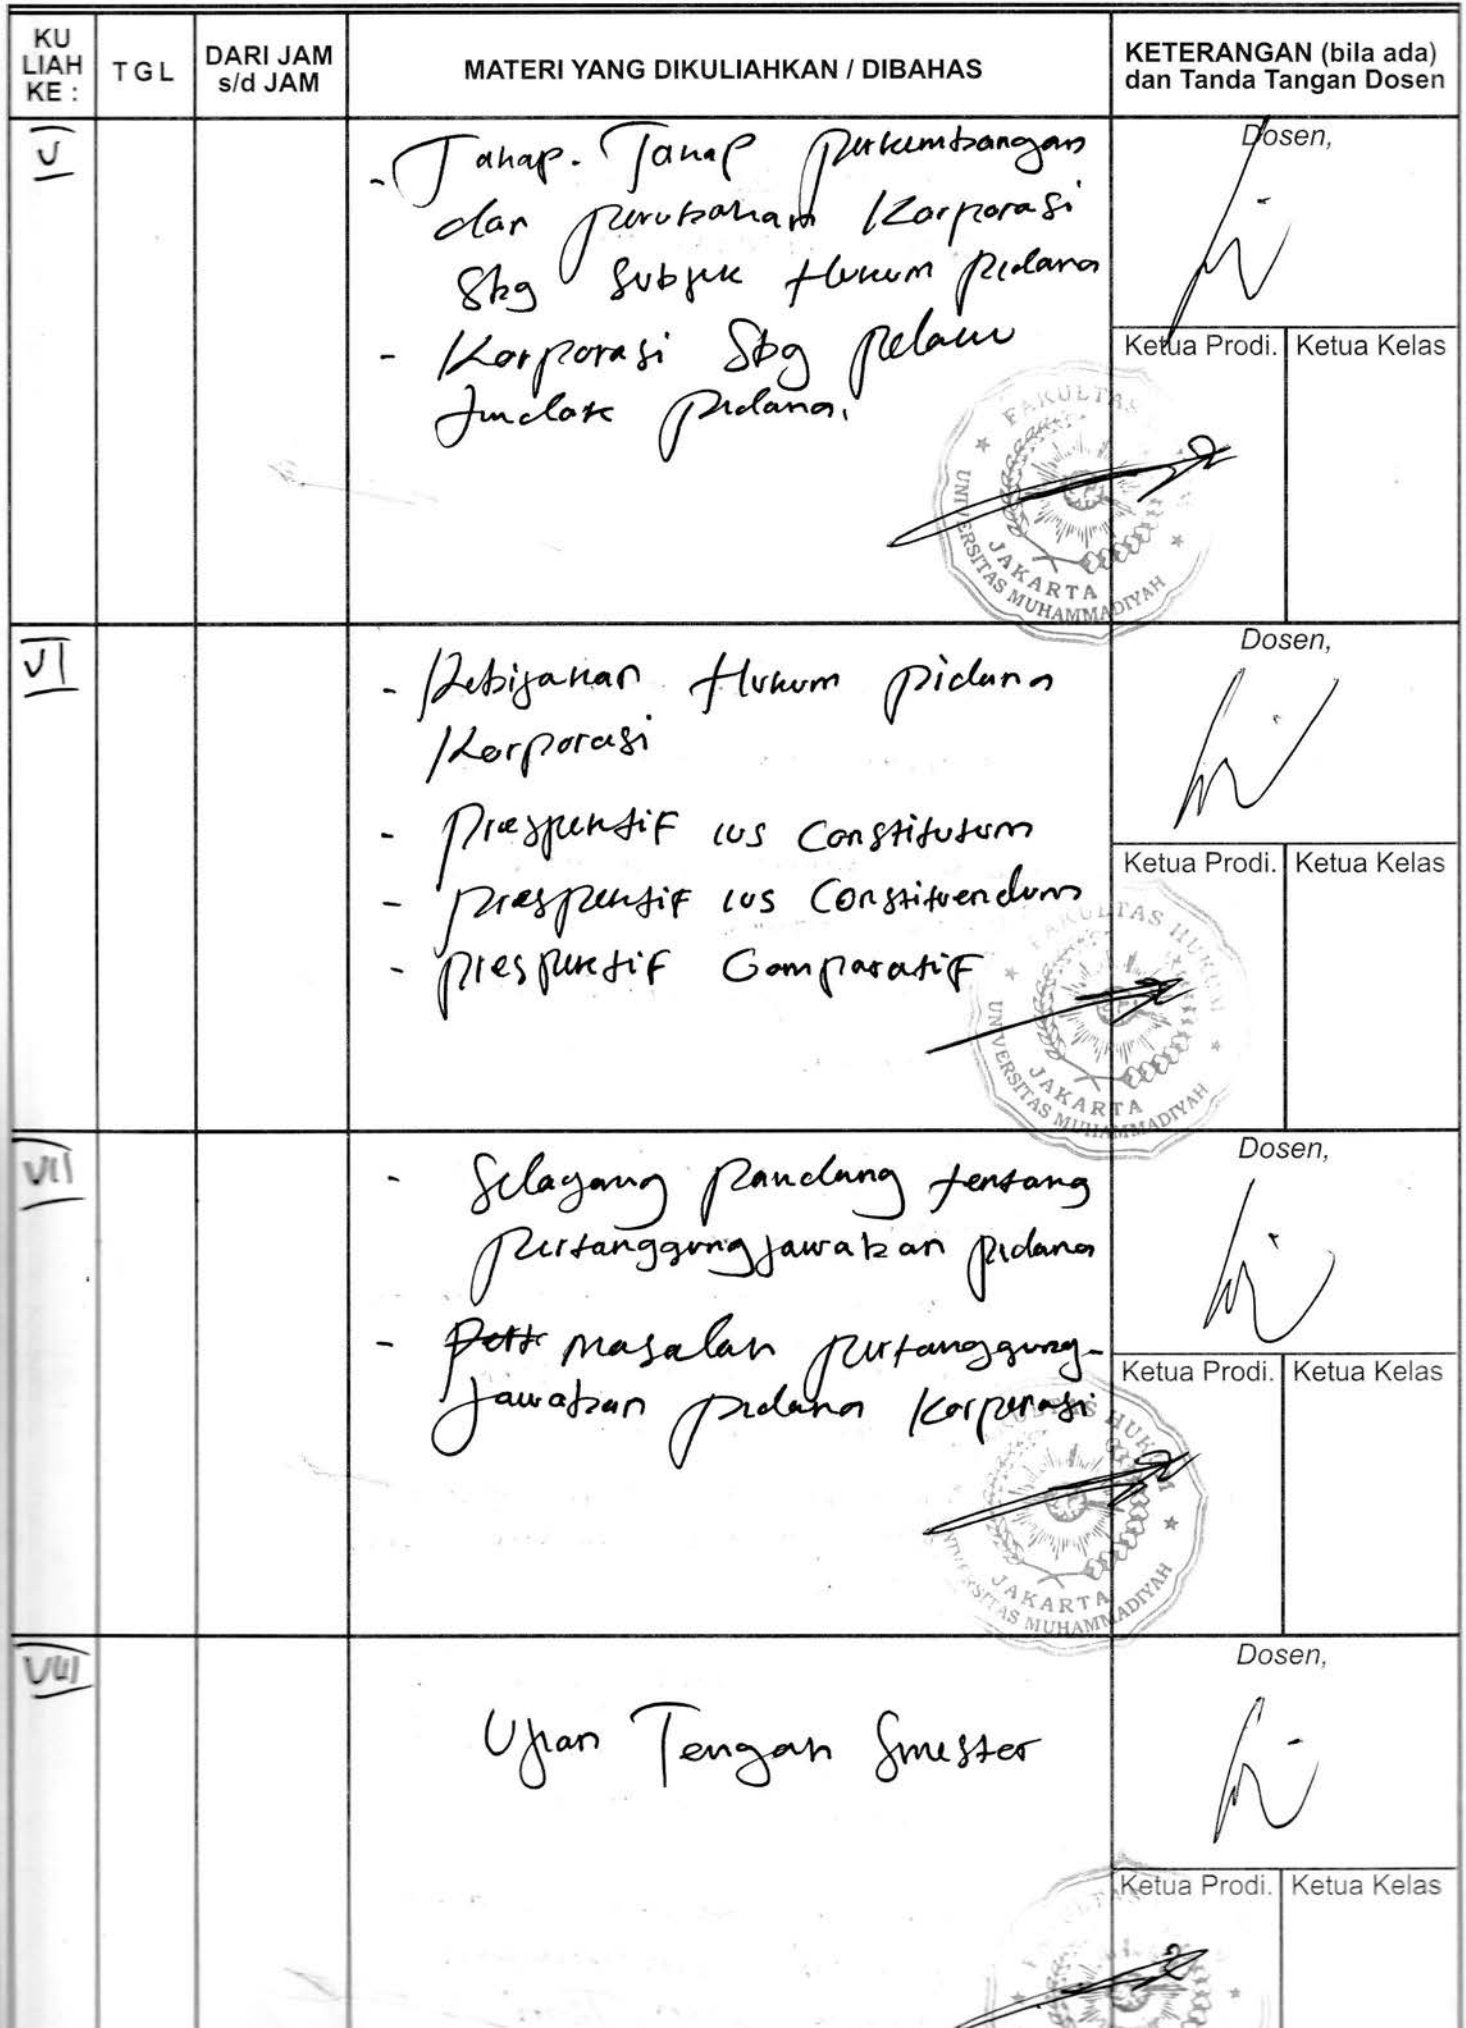 KU LIAH KE : TGL DARI JAM s/d JAM MATERI YANG DIKULIAHKAN / DIBAHAS KETERANGAN (bila ada) dan Tanda Tangan Dosen
V
- Tahap-Tahap perkembangan
dan perubahan Korporasi
Sbg Subjek Hukum pidana
- Korporasi Sbg pelaku
tindak pidana.
Dosen,
Ketua Prodi. Ketua Kelas
FAKULTAS
UNIVERSITAS MUHAMMADIYAH
JAKARTA
VI
- Kebijakan Hukum pidana
Korporasi
- prespektif ius Constitutum
- prespektif ius Constituendum
- prespektif Comparatif
Dosen,
Ketua Prodi. Ketua Kelas
FAKULTAS HUKUM
UNIVERSITAS MUHAMMADIYAH
JAKARTA
VII
- Selayang pandang tentang
pertanggungjawaban pidana
- masalah pertanggung-
jawaban pidana Korporasi
Dosen,
Ketua Prodi. Ketua Kelas
FAKULTAS HUKUM
UNIVERSITAS MUHAMMADIYAH
JAKARTA
VIII
Ujian Tengah Smester
Dosen,
Ketua Prodi. Ketua Kelas